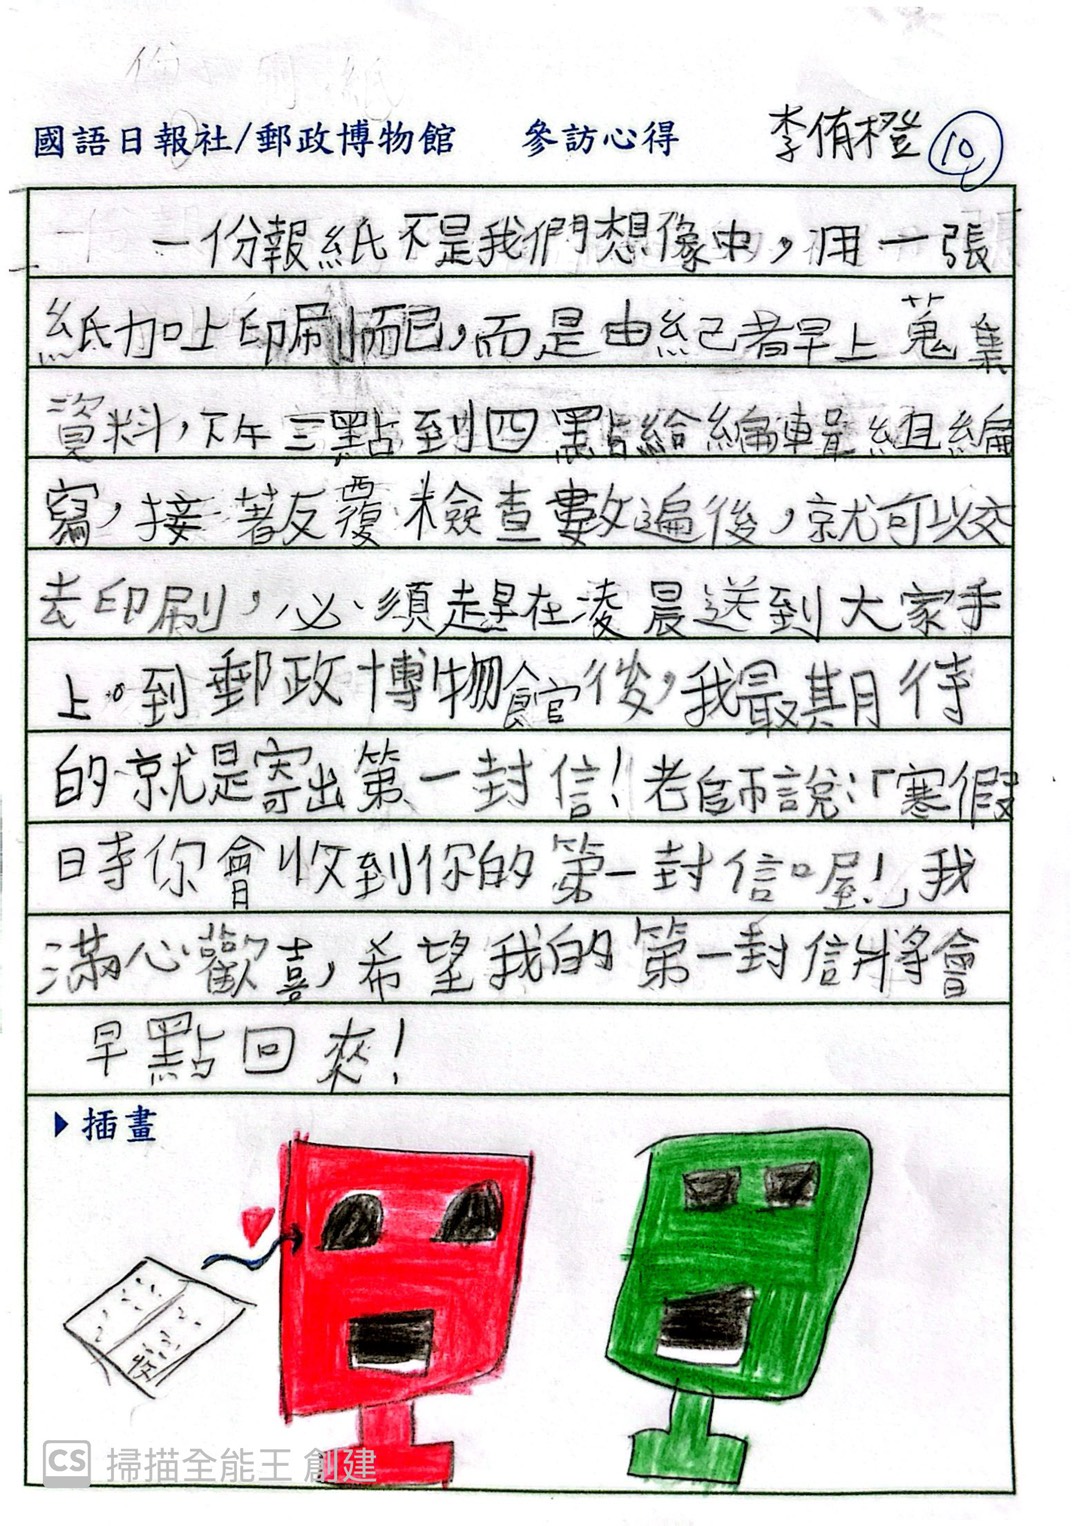 國語日報社/郵政博物館 參訪心得 李侑橙 10
一份報紙不是我們想像中，用一張
紙加上印刷而已，而是由紀者早上蒐集
資料，下午三點到四點給編輯組編
寫，接著反覆檢查數遍後，就可以交
去印刷，必須趕在凌晨送到大家手
上。到郵政博物館後，我最期待
的就是寄出第一封信！老師說：「寒假
時你會收到你的第一封信喔！」我
滿心歡喜，希望我的第一封信將會
早點回來！
▶插畫
CS 掃描全能王 創建